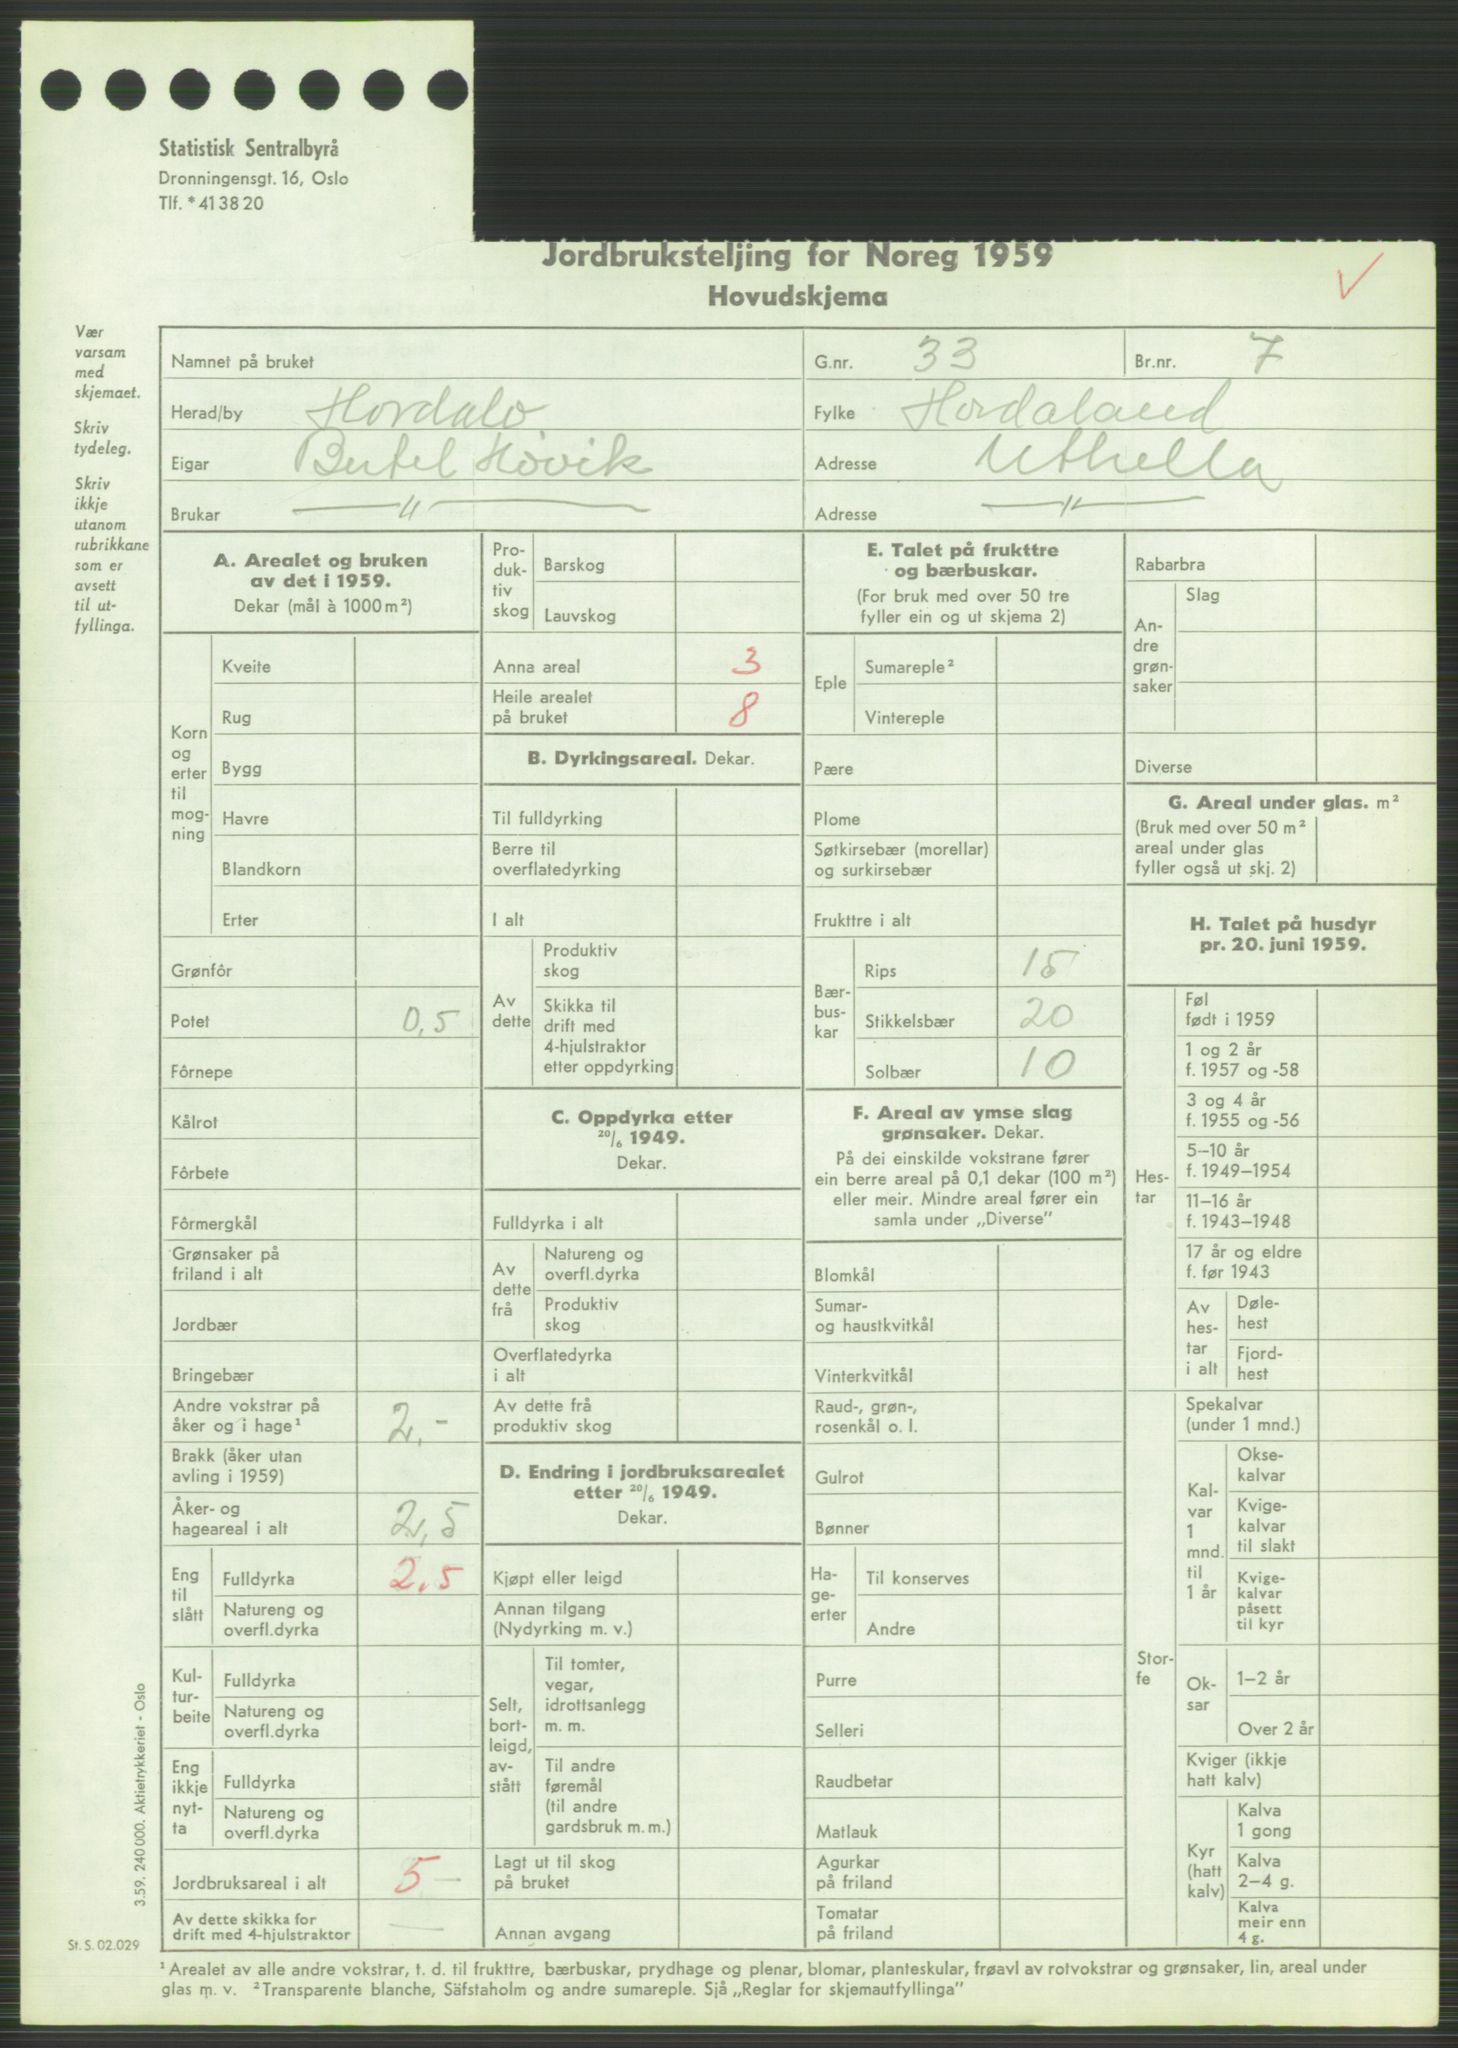 Statistisk Sentralbyrå
Dronningensgt. 16, Oslo
Tlf. *41 38 20
Jordbruksteljing for Noreg 1959
Hovudskjema
Vær
varsam
med
skjemaet.
Skriv
tydeleg.
Skriv
ikkje
utanom
rubrikkane
som er
avsett
til ut-
fyllinga.
Namnet på bruket
G.nr. 33
Br.nr. 7
Herad/by
Fylke Hordaland
Eigar Bertel Høvik
Adresse Uthella
Brukar —〃—
Adresse —〃—
A. Arealet og bruken
av det i 1959.
Dekar (mål à 1000 m²)
Korn
og
erter
til
mog-
ning
Kveite
Rug
Bygg
Havre
Blandkorn
Erter
Grønfôr
Potet 0,5
Fôrnepe
Kålrot
Fôrbete
Fôrmergkål
Grønsaker på
friland i alt
Jordbær
Bringebær
Andre vokstrar på
åker og i hage¹ 2,-
Brakk (åker utan
avling i 1959)
Åker- og
hageareal i alt 2,5
Eng
til
slått
Fulldyrka 2,5
Natureng og
overfl.dyrka
Kul-
tur-
beite
Fulldyrka
Natureng og
overfl.dyrka
Eng
ikkje
nyt-
ta
Fulldyrka
Natureng og
overfl.dyrka
Jordbruksareal i alt 5 —
Av dette skikka for
drift med 4-hjulstraktor —
Pro-
duk-
tiv
skog
Barskog
Lauvskog
Anna areal 3
Heile arealet
på bruket 8
B. Dyrkingsareal. Dekar.
Til fulldyrking
Berre til
overflatedyrking
I alt
Av
dette
Produktiv
skog
Skikka til
drift med
4-hjulstraktor
etter oppdyrking
C. Oppdyrka etter
20/6 1949.
Dekar.
Fulldyrka i alt
Av
dette
frå
Natureng og
overfl.dyrka
Produktiv
skog
Overflatedyrka
i alt
Av dette frå
produktiv skog
D. Endring i jordbruksarealet
etter 20/6 1949.
Dekar.
Kjøpt eller leigd
Annan tilgang
(Nydyrking m. v.)
Selt,
bort-
leigd,
av-
stått
Til tomter,
vegar,
idrottsanlegg
m. m.
Til andre
føremål
(til andre
gardsbruk m. m.)
Lagt ut til skog
på bruket
Annan avgang
E. Talet på frukttre
og bærbuskar.
(For bruk med over 50 tre
fyller ein og ut skjema 2)
Eple
Sumareple²
Vintereple
Pære
Plome
Søtkirsebær (morellar)
og surkirsebær
Frukttre i alt
Bær-
bus-
kar
Rips 15
Stikkelsbær 20
Solbær 10
F. Areal av ymse slag
grønsaker. Dekar.
På dei einskilde vokstrane fører
ein berre areal på 0,1 dekar (100 m²)
eller meir. Mindre areal fører ein
samla under „Diverse”
Blomkål
Sumar-
og haustkvitkål
Vinterkvitkål
Raud-, grøn-,
rosenkål o. l.
Gulrot
Bønner
Ha-
ge-
erter
Til konserves
Andre
Purre
Selleri
Raudbetar
Matlauk
Agurkar
på friland
Tomatar
på friland
Rabarbra
An-
dre
grøn-
saker
Slag
Diverse
G. Areal under glas. m²
(Bruk med over 50 m²
areal under glas
fyller også ut skj. 2)
H. Talet på husdyr
pr. 20. juni 1959.
Hes-
tar
Føl
født i 1959
1 og 2 år
f. 1957 og -58
3 og 4 år
f. 1955 og -56
5–10 år
f. 1949–1954
11–16 år
f. 1943–1948
17 år og eldre
f. før 1943
Av
hes-
tar
i alt
Døle-
hest
Fjord-
hest
Stor-
fe
Spekalvar
(under 1 mnd.)
Kal-
var
1
mnd.
til
1 år
Okse-
kalvar
Kvige-
kalvar
til slakt
Kvige-
kalvar
påsett
til kyr
Ok-
sar
1–2 år
Over 2 år
Kviger (ikkje
hatt kalv)
Kyr
(hatt
kalv)
Kalva
1 gong
Kalva
2–4 g.
Kalva
meir enn
4 g.
3.59. 240 000. Aktietrykkeriet - Oslo
St. S. 02.029
¹ Arealet av alle andre vokstrar, t. d. til frukttre, bærbuskar, prydhage og plenar, blomar, planteskular, frøavl av rotvokstrar og grønsaker, lin, areal under
glas m. v. ² Transparente blanche, Säfstaholm og andre sumareple. Sjå „Reglar for skjemautfyllinga”